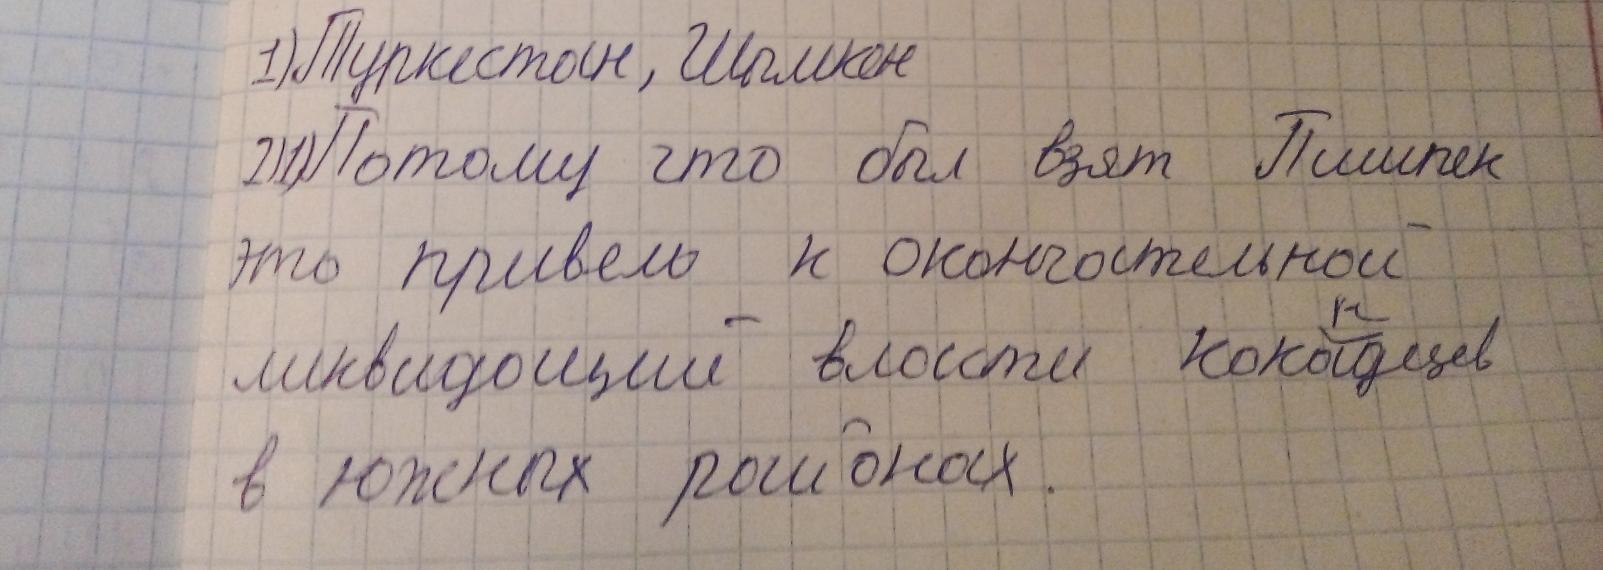 1) Туркестан, Шымкен
2)1) Потому что был взят Пишпек
это привель к окончательной
ликвидаций власти кокандцев
в южных районах.